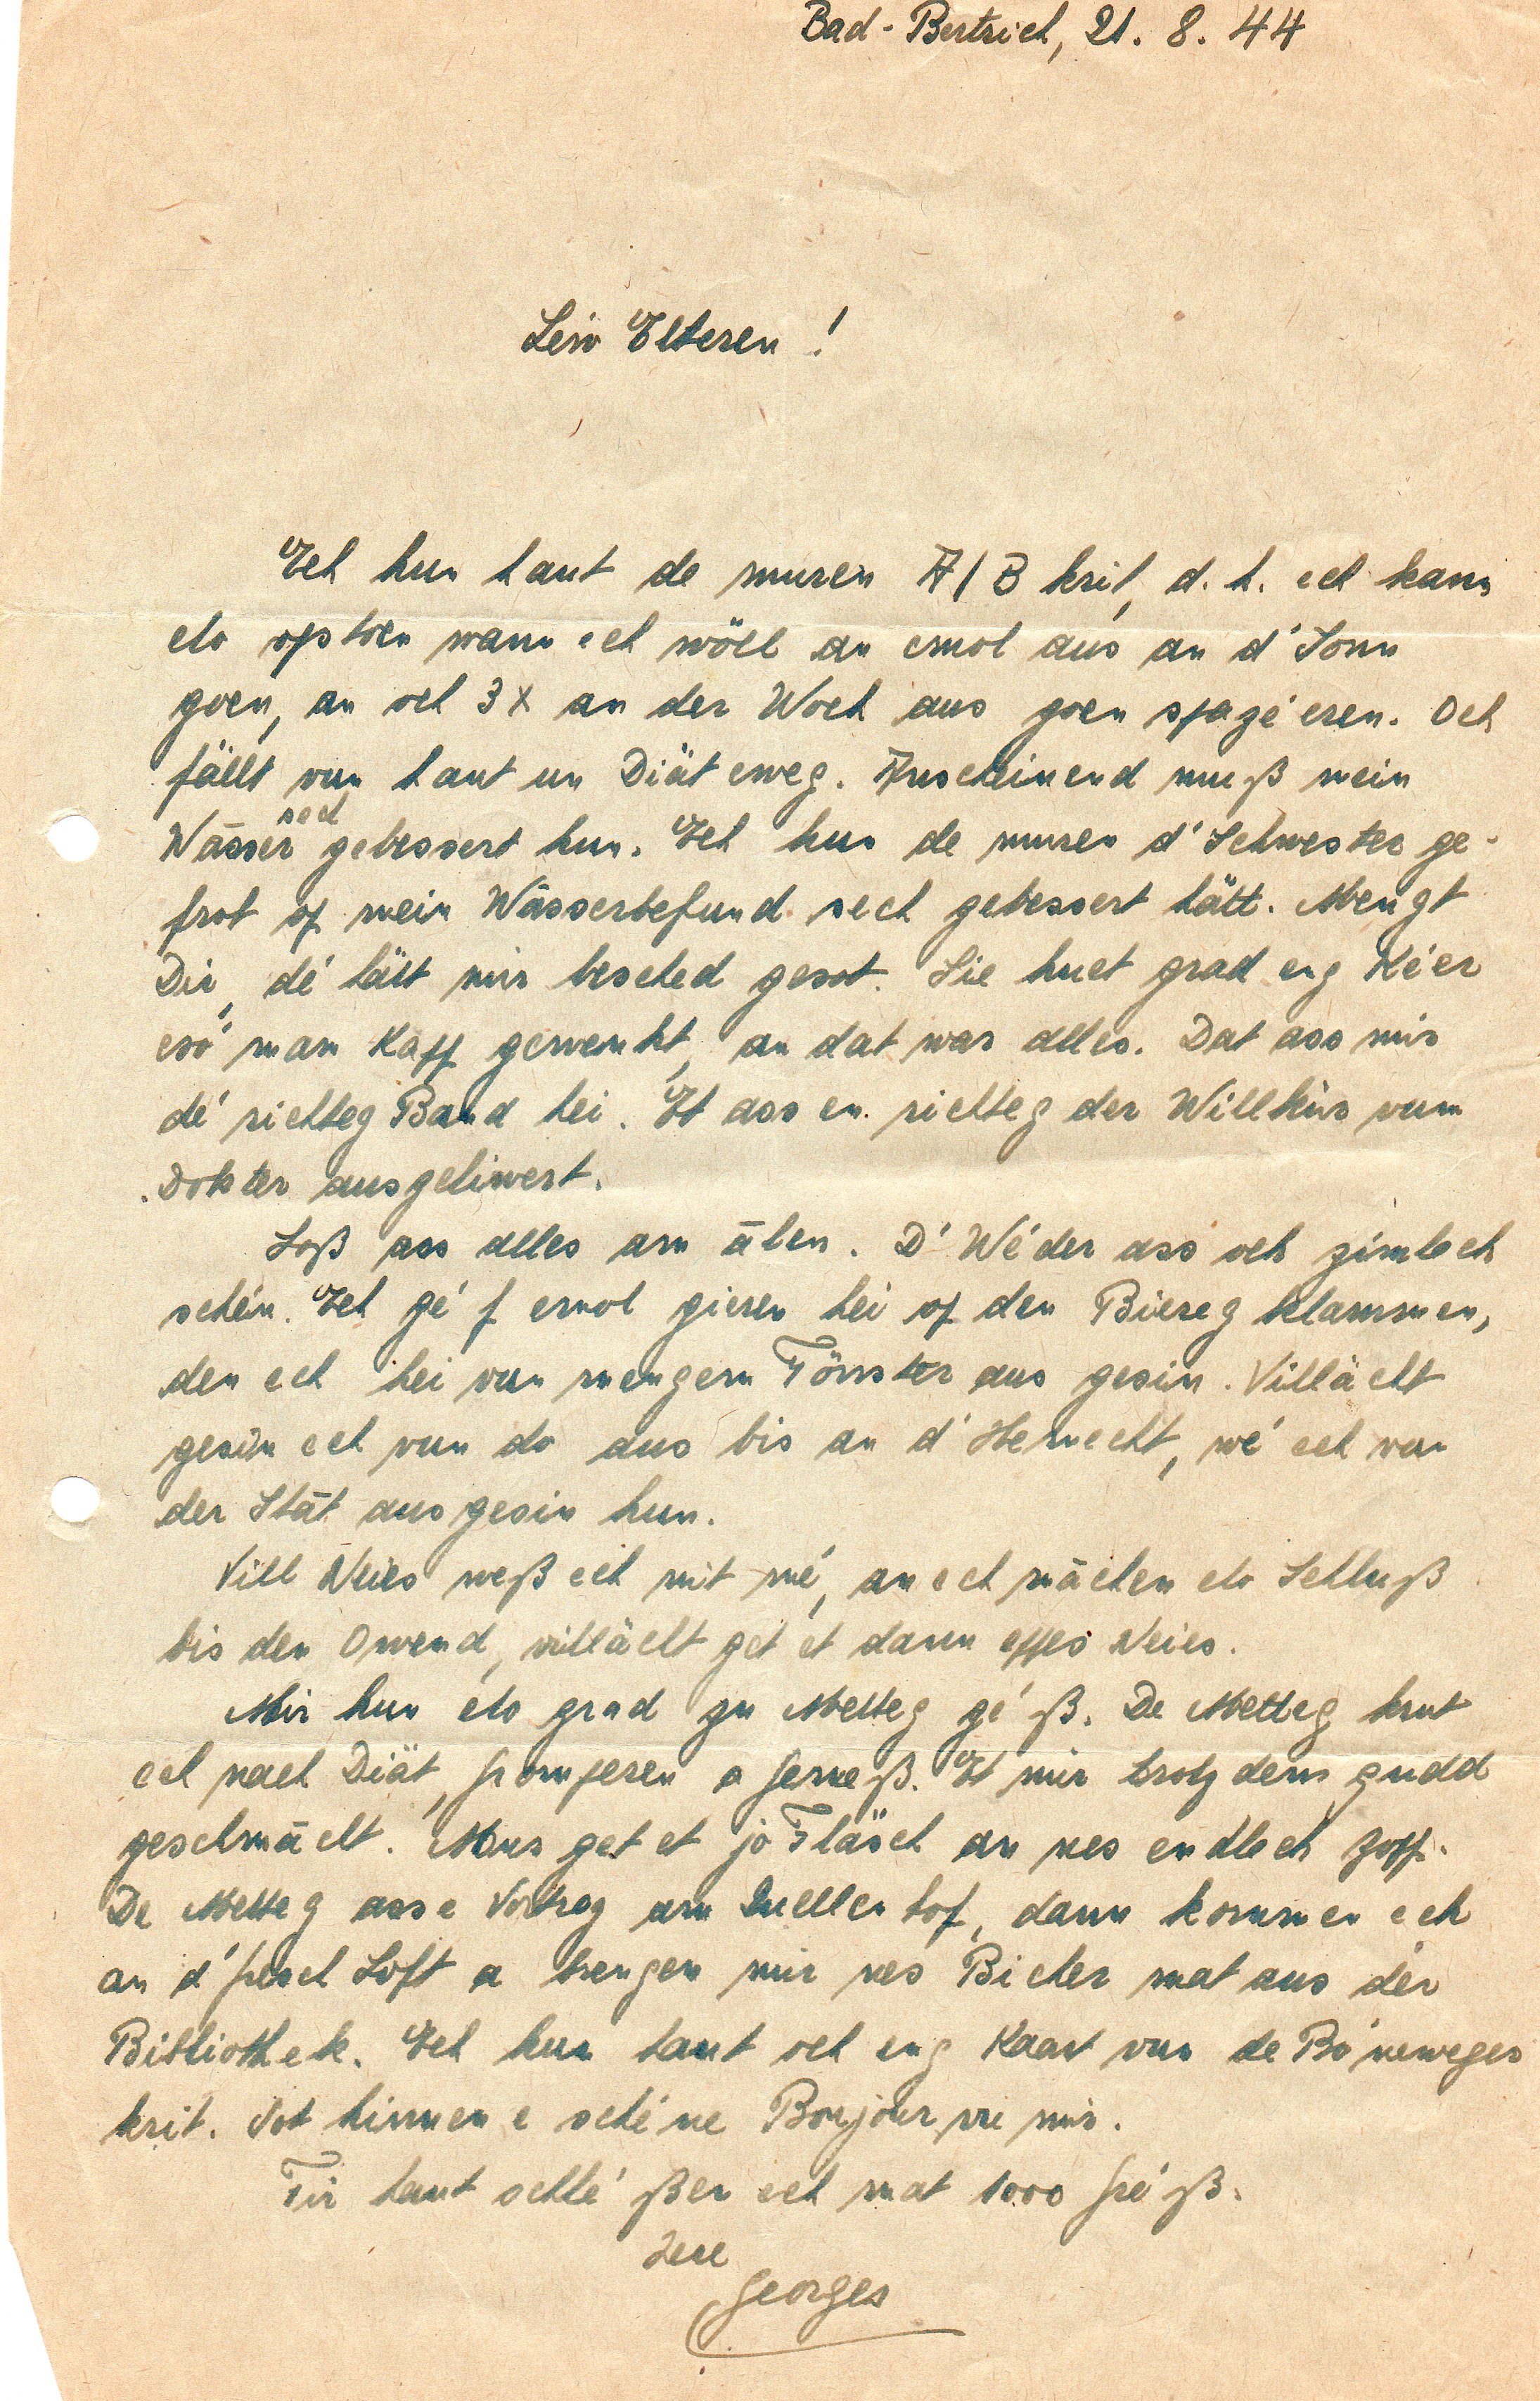 Bad-Bertrich, 21. 8. 44
Léiw Elteren!
Ech hun haut de muren A/B krit, d. h. ech kann
elo opstoen wann ech wöll an emol aus an d'Sonn
goen, an och 3x an der Woch aus goen spazéieren. Och
fällt vun haut un Diät eweg. Anscheinend muß mein
Wässer sech gebessert hun. Ech hun de muren d'Schwester ge-
frot op mein Wässerbefund sech gebessert hätt. Mengt
Dir, dé hätt mir besched gesot. Sie huet grad eng Kéier
esó mam Kapp gewenkt, an dat war alles. Dat ass mir
dé richteg Band hei. Et ass en richteg der Willkür vum
Dokter ausgeliwert.
Soß ass alles am ālen. D'Wéder ass och zimlech
schéin. Ech gé f emol gieren hei op den Biereg klammen,
den ech hei vun mengem Fönster aus gesin. Villächt
gesin ech vun do aus bis an d'Hemecht, wé ech vun
der Stāt aus gesin hun.
Vill Neies weß ech nit mé, an ech māchen elo Schluß
bis den Owend, villächt get et dann eppes Neies.
Mir hun elo grad zu Metteg géß. De Metteg krut
ech nach Diät, Gromperen a Geméß. Et mir trotzdem gudd
geschmācht. Muer get et jo Fläsch an nes endlech Zopp.
De Metteg ass e Vortrag am Quellenhof, dann kommen ech
an d'fresch Loft a brengen mir nes Bicher mat aus der
Bibliothek. Ech hun haut och eng Kaart vun de Bóneweger
krit. Sot hinnen e schéine Bonjour vu mir.
Fir haut schléßen ech mat 1000 Gréß.
Iere
Georges